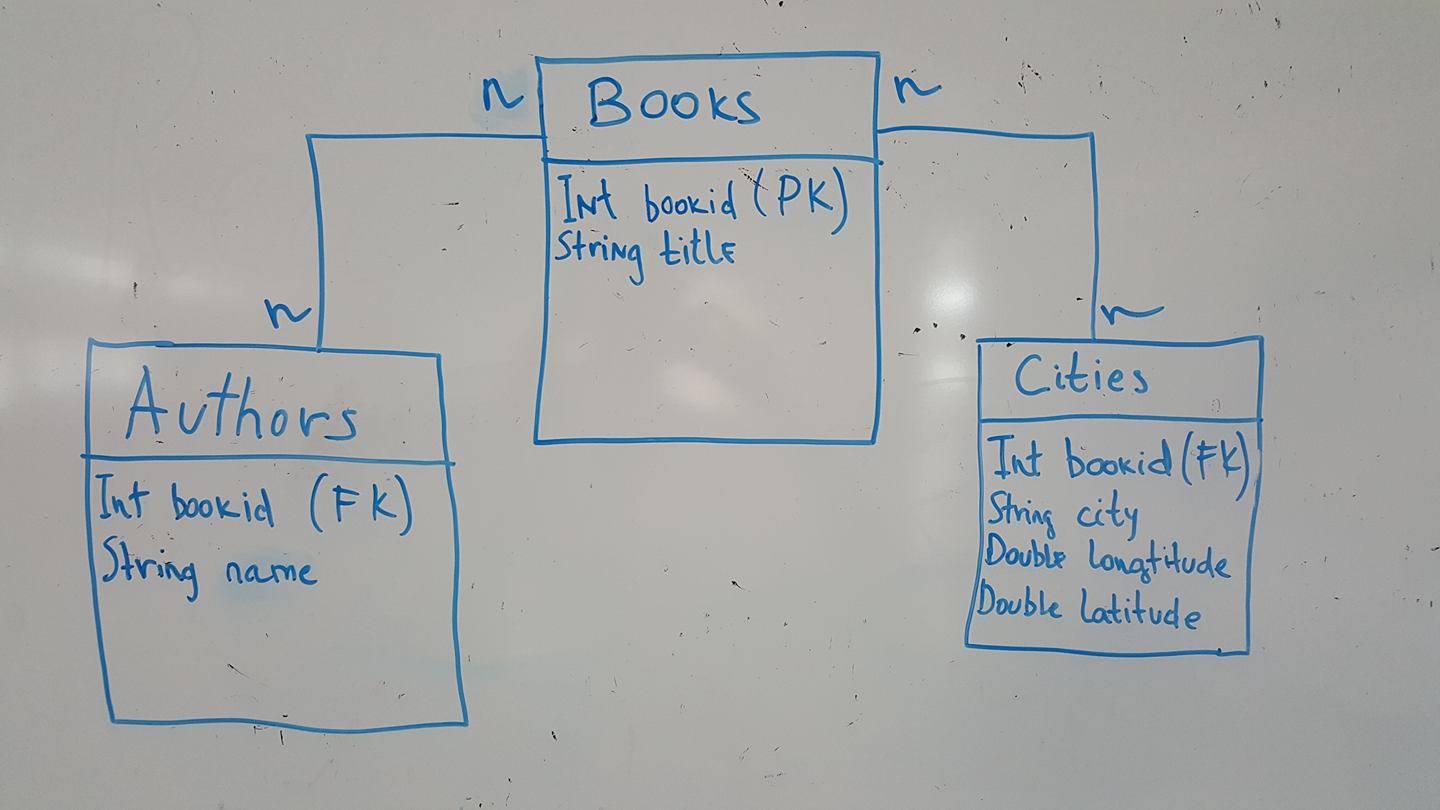 n
Books
n
Int bookid (PK)
String title
n
Authors
Int bookid (FK)
String name
n
Cities
Int bookid (FK)
String city
Double longtitude
Double latitude